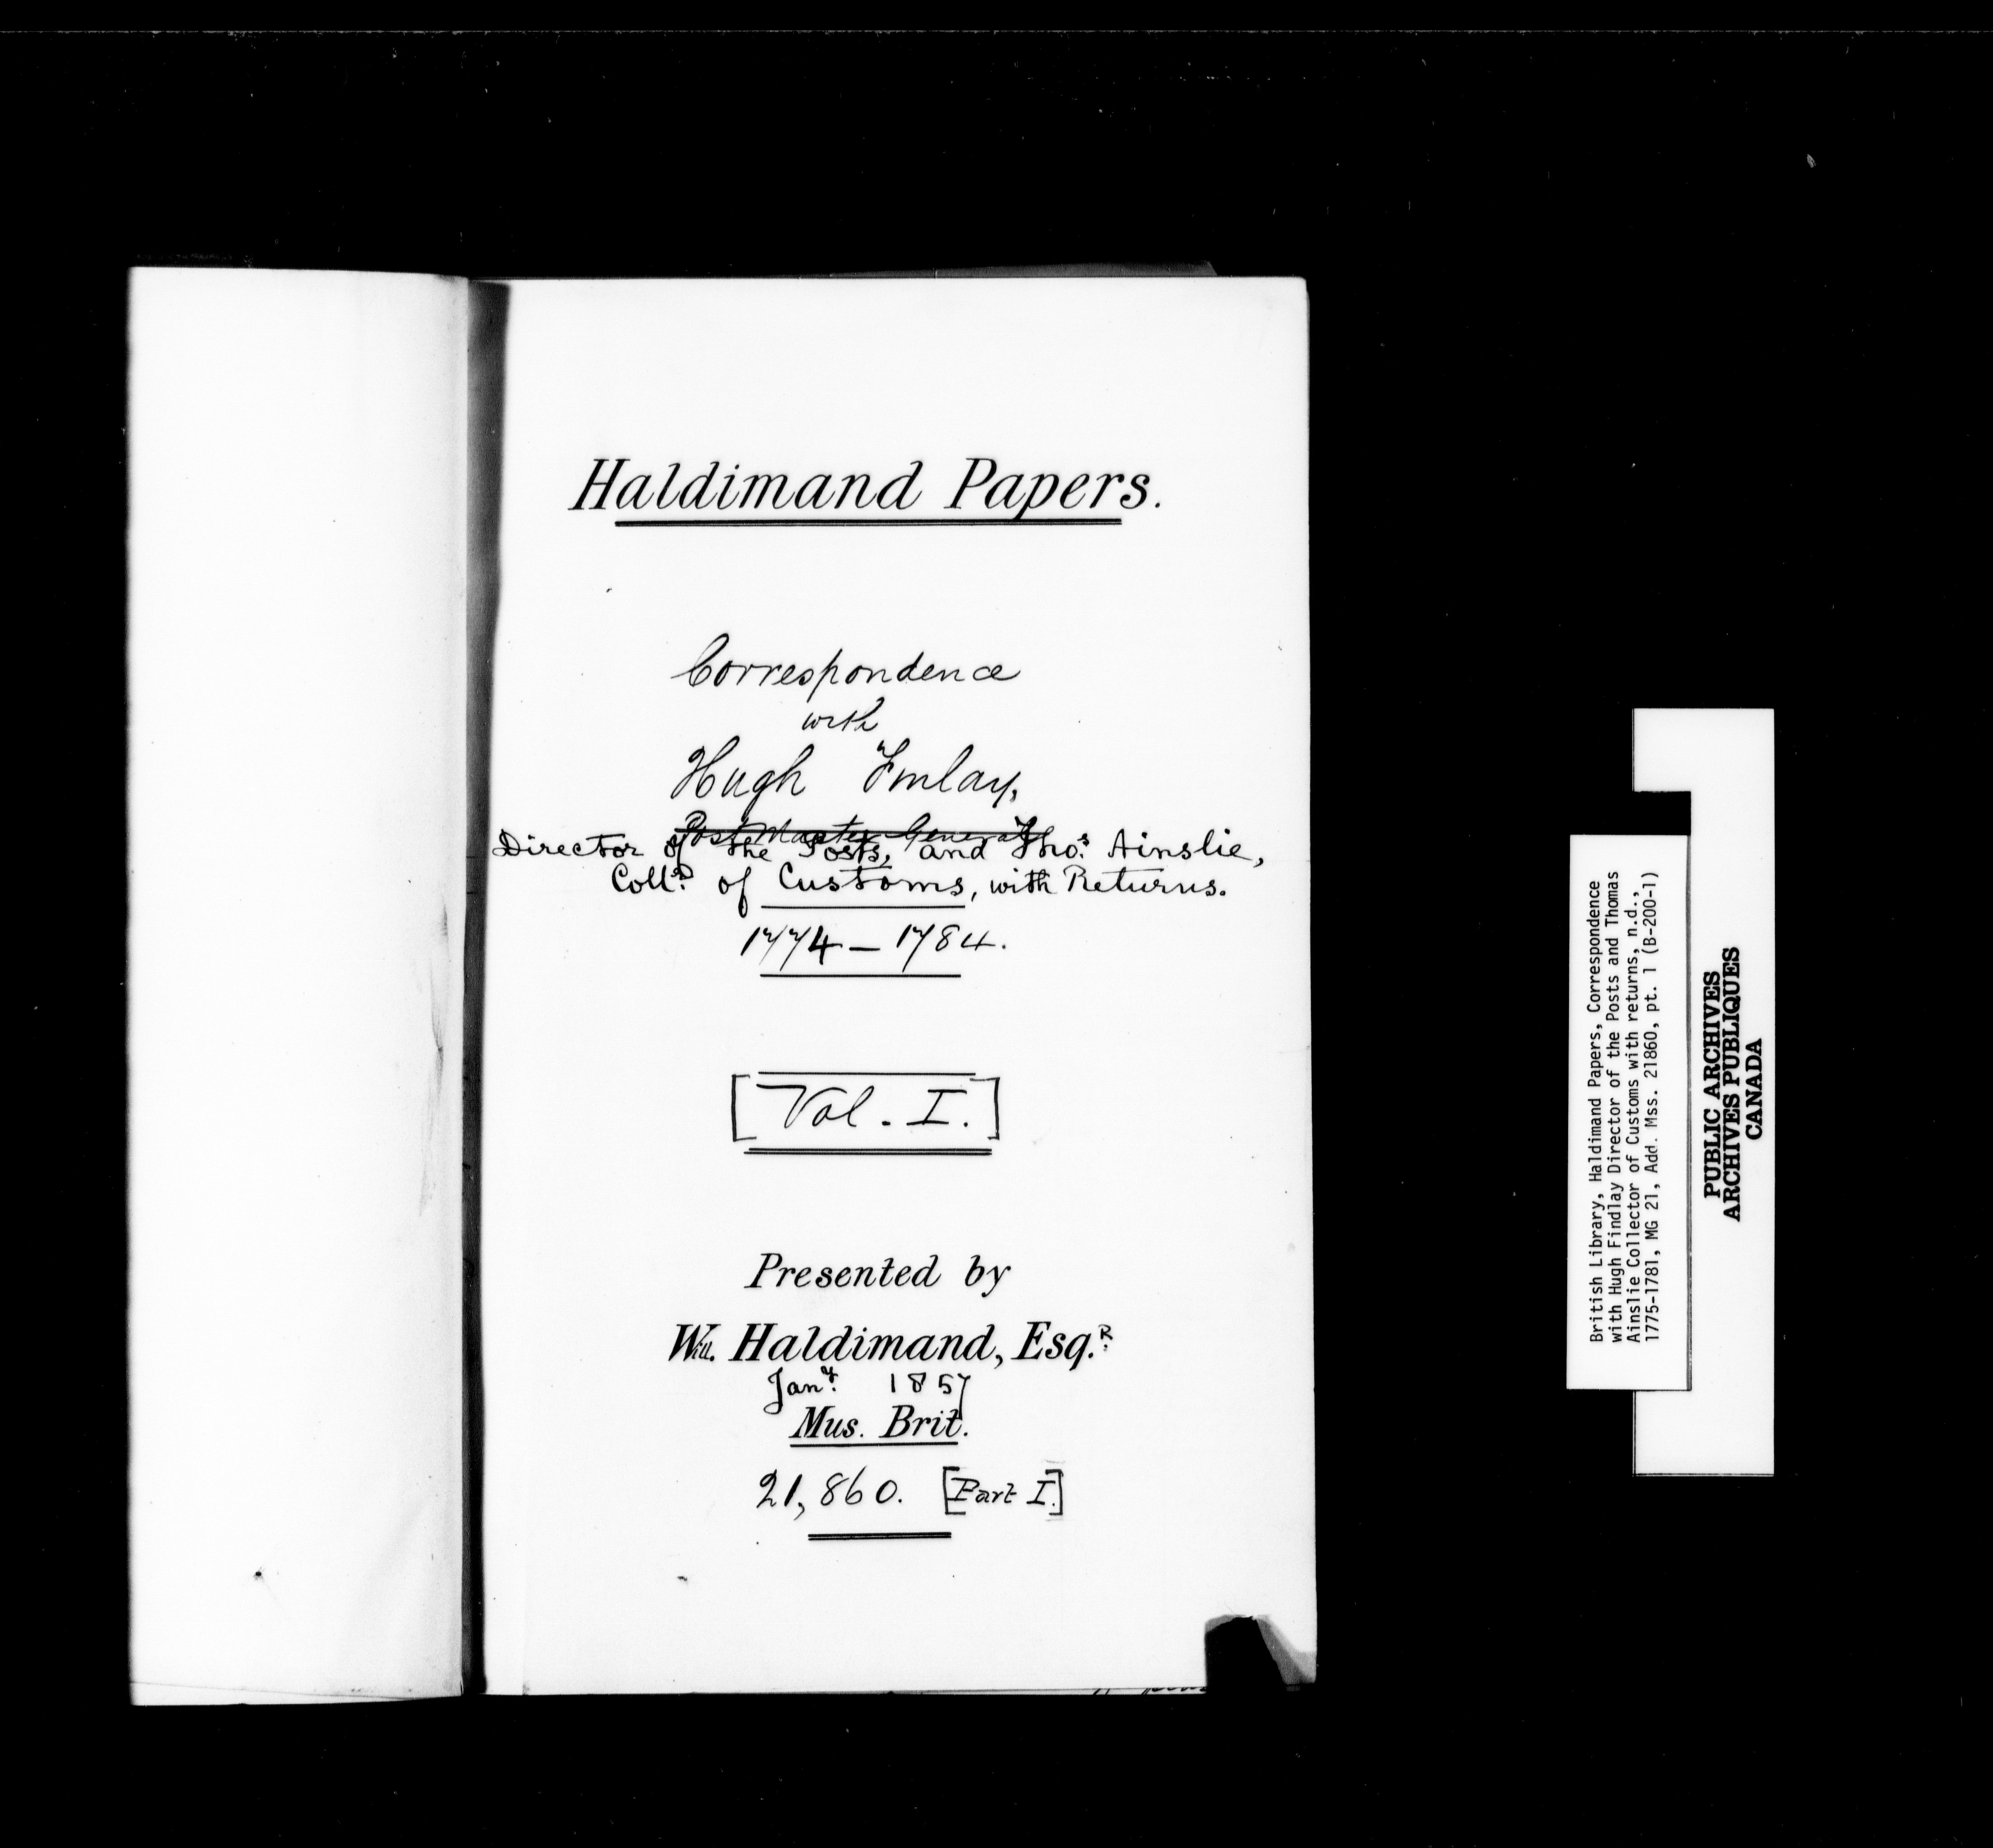 Haldimand Papers.
Correspondence
with
Hugh Finlay,
Post Master General
Director of the Posts, and Thos. Ainslie,
Collr. of Customs, with Returns.
1774 — 1784.
[Vol. I.]
Presented by
Wm. Haldimand, Esq.R
Jany. 1857
Mus. Brit.
21,860. [Part I.]
British Library, Haldimand Papers, Correspondence
with Hugh Findlay Director of the Posts and Thomas
Ainslie Collector of Customs with returns, n.d.,
1775-1781, MG 21, Add. Mss. 21860, pt. 1 (B-200-1)
PUBLIC ARCHIVES
ARCHIVES PUBLIQUES
CANADA